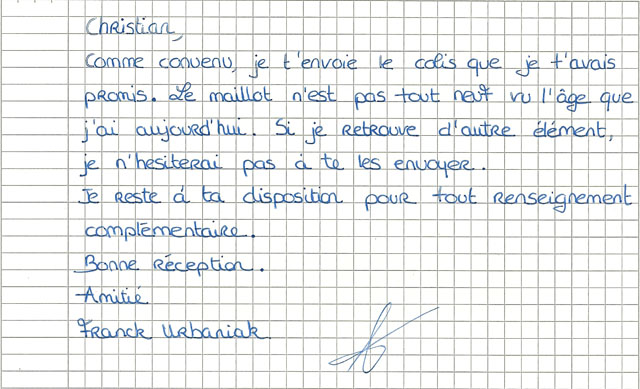 Christian,
Comme convenu, je t'envoie le colis que je t'avais
promis. Le maillot n'est pas tout neuf vu l'âge que
j'ai aujourd'hui. Si je retrouve d'autre élément,
je n'hesiterai pas à te les envoyer.
Je reste à ta disposition pour tout renseignement
complémentaire.
Bonne réception.
Amitié
Franck Urbaniak